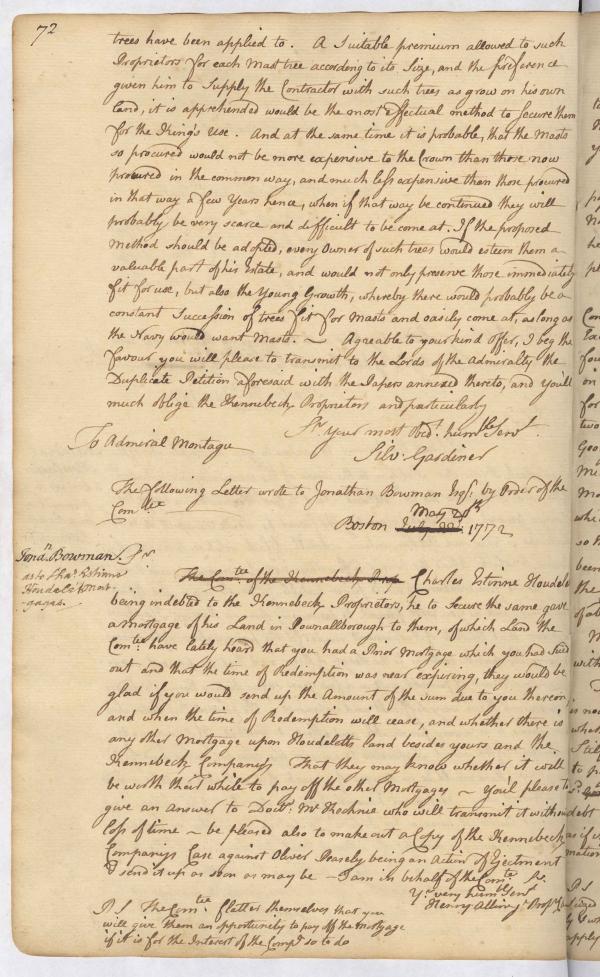 72
trees have been applied to. A Suitable premium allowed to such
Proprietors for each Mast tree according to its Size, and the preference
given him to Supply the Contractor with such trees as grow on his own
Land, it is apprehended would be the most effectual method to secure them
for the Kings Use. And at the same time it is probable, that the Masts
so procured would not be more expensive to the Crown than those now
procured in the common way, and much less expensive than those procured
in that way a few Years hence, when if that way be continued they will
probably be very scarce and difficult to be come at. If the proposed
Method should be adopted, every Owner of such trees would esteem them a
valuable part of his Estate, and would not only preserve those immediately
fit for use, but also the Young Growth, whereby there would probably be a
constant Succession of trees fit for Masts and easily come at, as long as
the Navy would want Masts. ~ Agreable to your kind Offer, I beg the
favour you will please to transmit to the Lords of the Admiralty the
Duplicate Petition aforesaid with the Papers annexed thereto, and you'll
much oblige the Kennebeck Proprietors and particularly
Sr. Your most Obedt. humble Servt.
To Admiral Montagu
Silv. Gardiner
The following Letter wrote to Jonathan Bowman Esqr. by Order of the
Comtee
May 20th
Boston July 22d. 1772
Jonan. Bowman
as to Chas. Estinne
Houdelet Mort
-gages.
Sr.
The Comtee. of the Kennebeck Prop Charles Estinne Houdelet
being indebted to the Kennebeck Proprietors, he to Secure the same gave
a Mortgage of his Land in Pownallborough to them, of which Land the
Comtee. have lately heard that you had a Prior Mortgage which you had Sued
out and that the time of Redemption was near expiring, they would be
glad if you would send up the Amount of the sum due to you thereon,
and when the time of Redemption will cease, and whether there is
any other Mortgage upon Houdeletts land besides yours and the
Kennebeck Companys That they may know whether it will
be worth their while to pay off the other Mortgages ~ You'l please to
give an Answer to Doctr. McKechnie who will transmit it without
loss of time ~ be pleased also to make out a Copy of the Kennebeck
Companys Case against Oliver Peasely being an Action of Ejectment
& send it up as soon as may be ~ I am in behalf of the Comtee Sr.
Yr. very humb Servt
Henry Alline Jr. Propr
P.S. The Comtee. flatter themselves that you
will give them an opportunity to pay off the Mortgage
if it is for the Interest of the Compy so to do